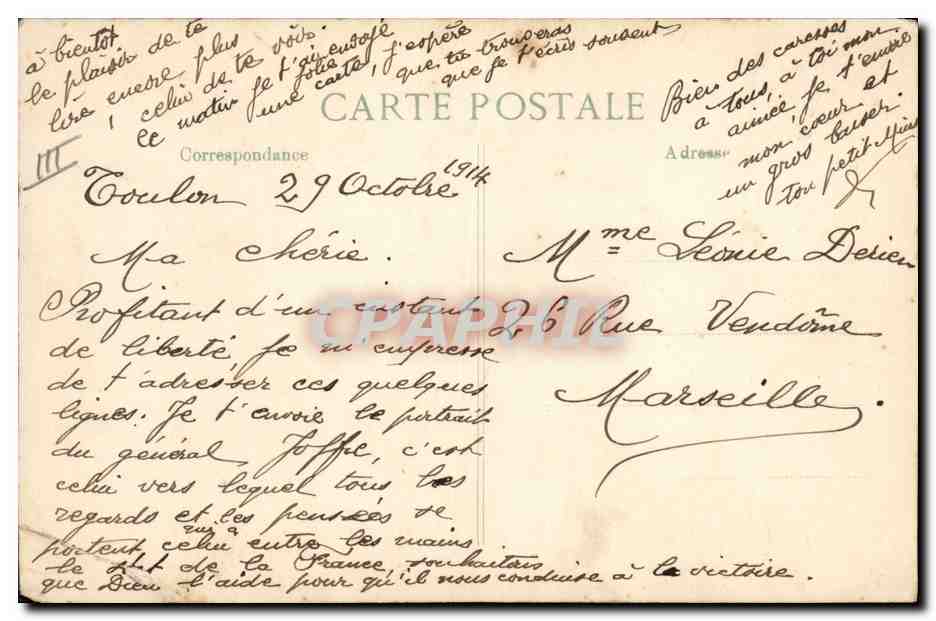 à bientôt
le plaisir de te
lire encore plus
celui de te voir.
Ce matin je t'ai envoyé
une jolie carte, j'espère
que tu trouveras
que je t'écris souvent
Bien des caresses
à tous, à toi mon
aimée, je t'envoie
mon cœur et
un gros baiser.
ton petit
III
CARTE POSTALE
Correspondance
Adresse
Toulon 29 Octobre 1914
Ma chérie.
Profitant d'un instant
de liberté je m'empresse
de t'adresser ces quelques
lignes. Je t'envoie le portrait
du général Joffre, c'est
celui vers lequel tous les
regards et les pensées se
portent celui qui a entre les mains
le sort de la France, souhaitons
que Dieu l'aide pour qu'il nous conduise à la victoire.
Mme Léonie Derien
26 Rue Vendôme
Marseille.
CPAPHIL